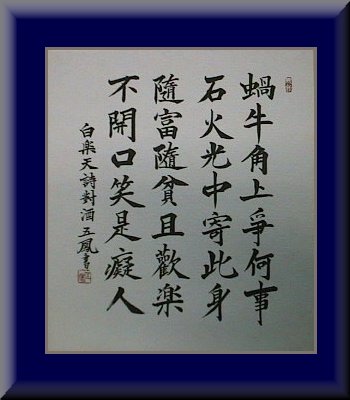 蝸牛角上爭何事
石火光中寄此身
隨富隨貧且歡楽
不開口笑是癡人
白楽天詩対酒 五鳳書